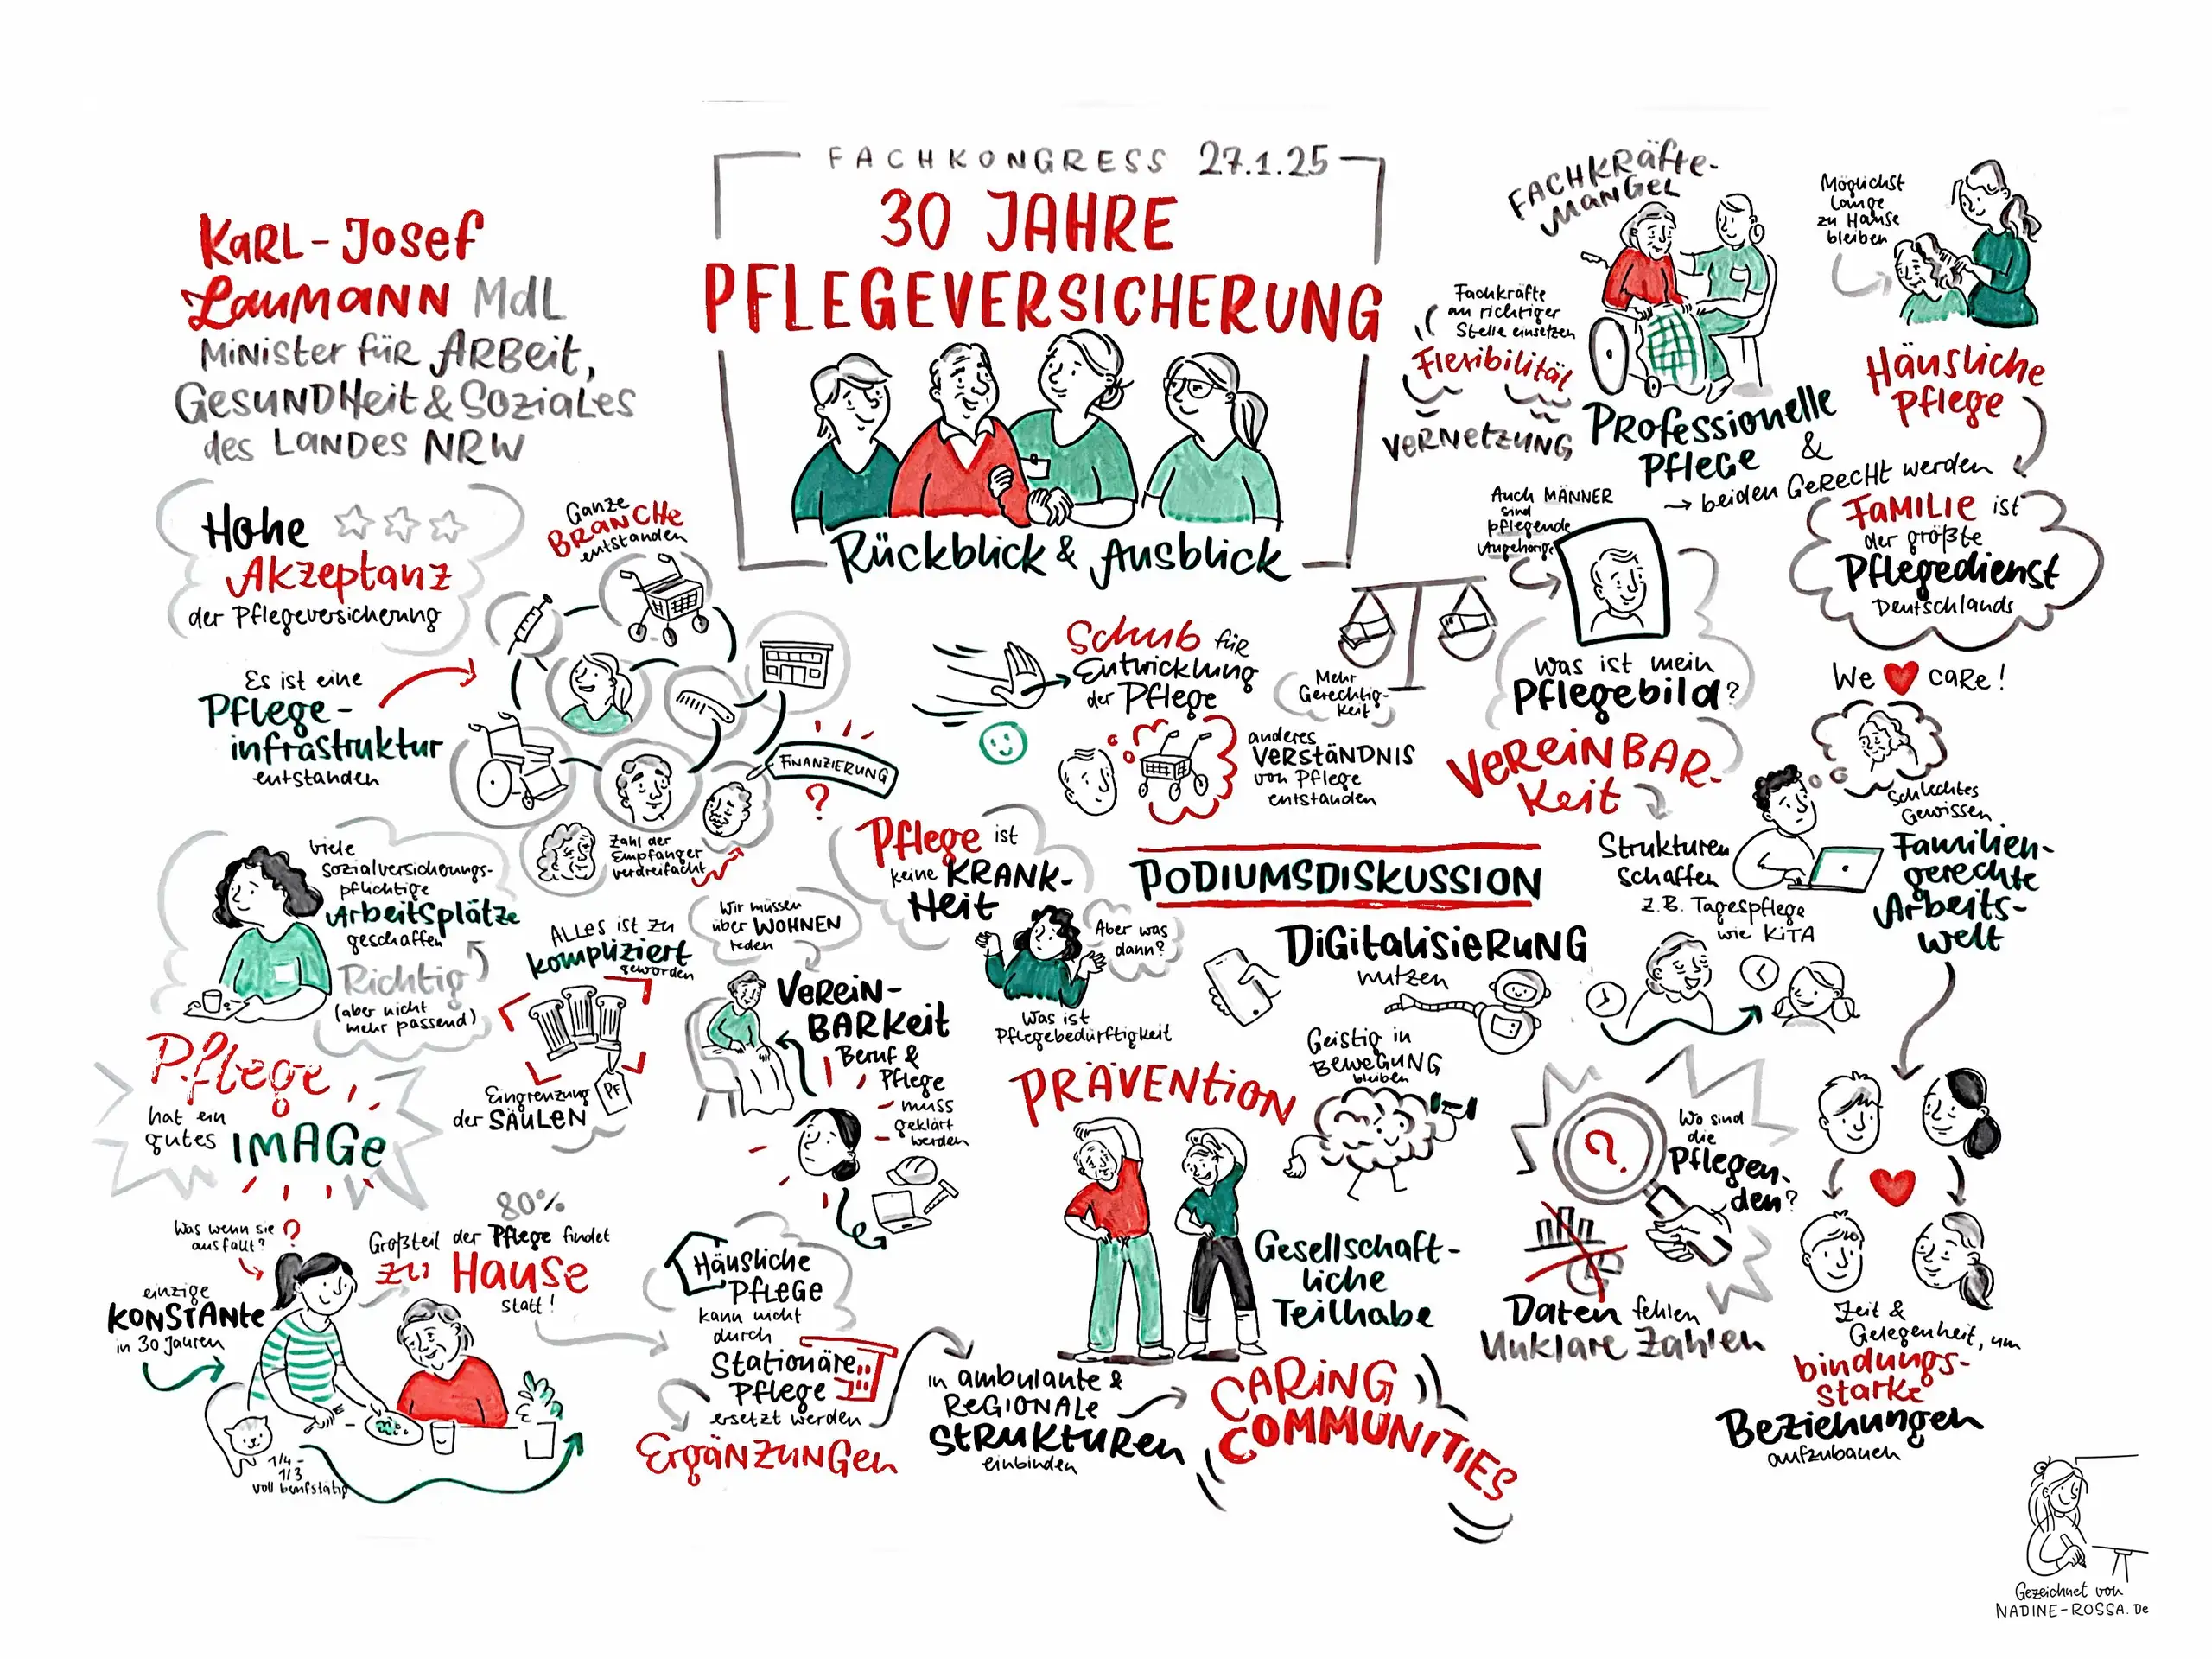 FACHKONGRESS 27.1.25
30 JAHRE
PFLEGEVERSICHERUNG
Rückblick & Ausblick
KARL-Josef
Laumann MdL
Minister für Arbeit,
Gesundheit & Soziales
des Landes NRW
Hohe
Akzeptanz
der Pflegeversicherung
Ganze
BRANCHE
entstanden
Es ist eine
Pflege-
infrastruktur
entstanden
FINANZIERUNG
?
Zahl der
Empfänger
verdreifacht
viele
sozialversicherungs-
pflichtige
Arbeitsplätze
geschaffen
Richtig
(aber nicht
mehr passend)
Alles ist zu
kompliziert
geworden
PF
Eingrenzung
der SÄULEN
Pflege
hat ein
gutes IMAGE
Was wenn sie
ausfällt?
?
einzige
KONSTANTE
in 30 Jahren
80%
Großteil der Pflege findet
zu Hause
statt!
1/4 -
1/3
voll berufstätig
Wir müssen
über WOHNEN
reden
VEREIN-
BARKeit
Beruf &
Pflege
muss
geklärt
werden
Häusliche
Pflege
kann nicht
durch
Stationäre
Pflege
ersetzt werden
Ergänzungen
in ambulante &
REGIONALE
STRUKTUREN
einbinden
CARING
COMMUNITIES
Schub für
Entwicklung
der Pflege
anderes
VERSTÄNDNIS
von Pflege
entstanden
Pflege ist
keine KRANK-
Heit
Aber was
dann?
Was ist
Pflegebedürftigkeit
Mehr
Gerechtig-
keit
PODIUMSDISKUSSION
DIGITALISIERUNG
nutzen
Geistig in
BEWEGUNG
bleiben
PRÄVENTION
Gesellschaft-
liche
Teilhabe
FACHKRÄFTE-
MANGEL
Fachkräfte
an richtiger
Stelle einsetzen
Flexibilität
VERNETZUNG
Professionelle
Pflege
&
→ beiden GERECHT werden
Möglichst
lange
zu Hause
bleiben
Häusliche
Pflege
FAMILIE ist
der größte
Pflegedienst
Deutschlands
We ♥ care!
Auch MÄNNER
sind
pflegende
Angehörige
Was ist mein
Pflegebild?
VEREINBAR-
Keit
Strukturen
schaffen
z.B. Tagespflege
wie KITA
Schlechtes
Gewissen
Familien-
gerechte
Arbeits-
welt
?
Wo sind
die
Pflegen-
den?
Daten fehlen
Unklare Zahlen
Zeit &
Gelegenheit, um
bindungs-
starke
Beziehungen
aufzubauen
Gezeichnet von
NADINE-ROSSA.De